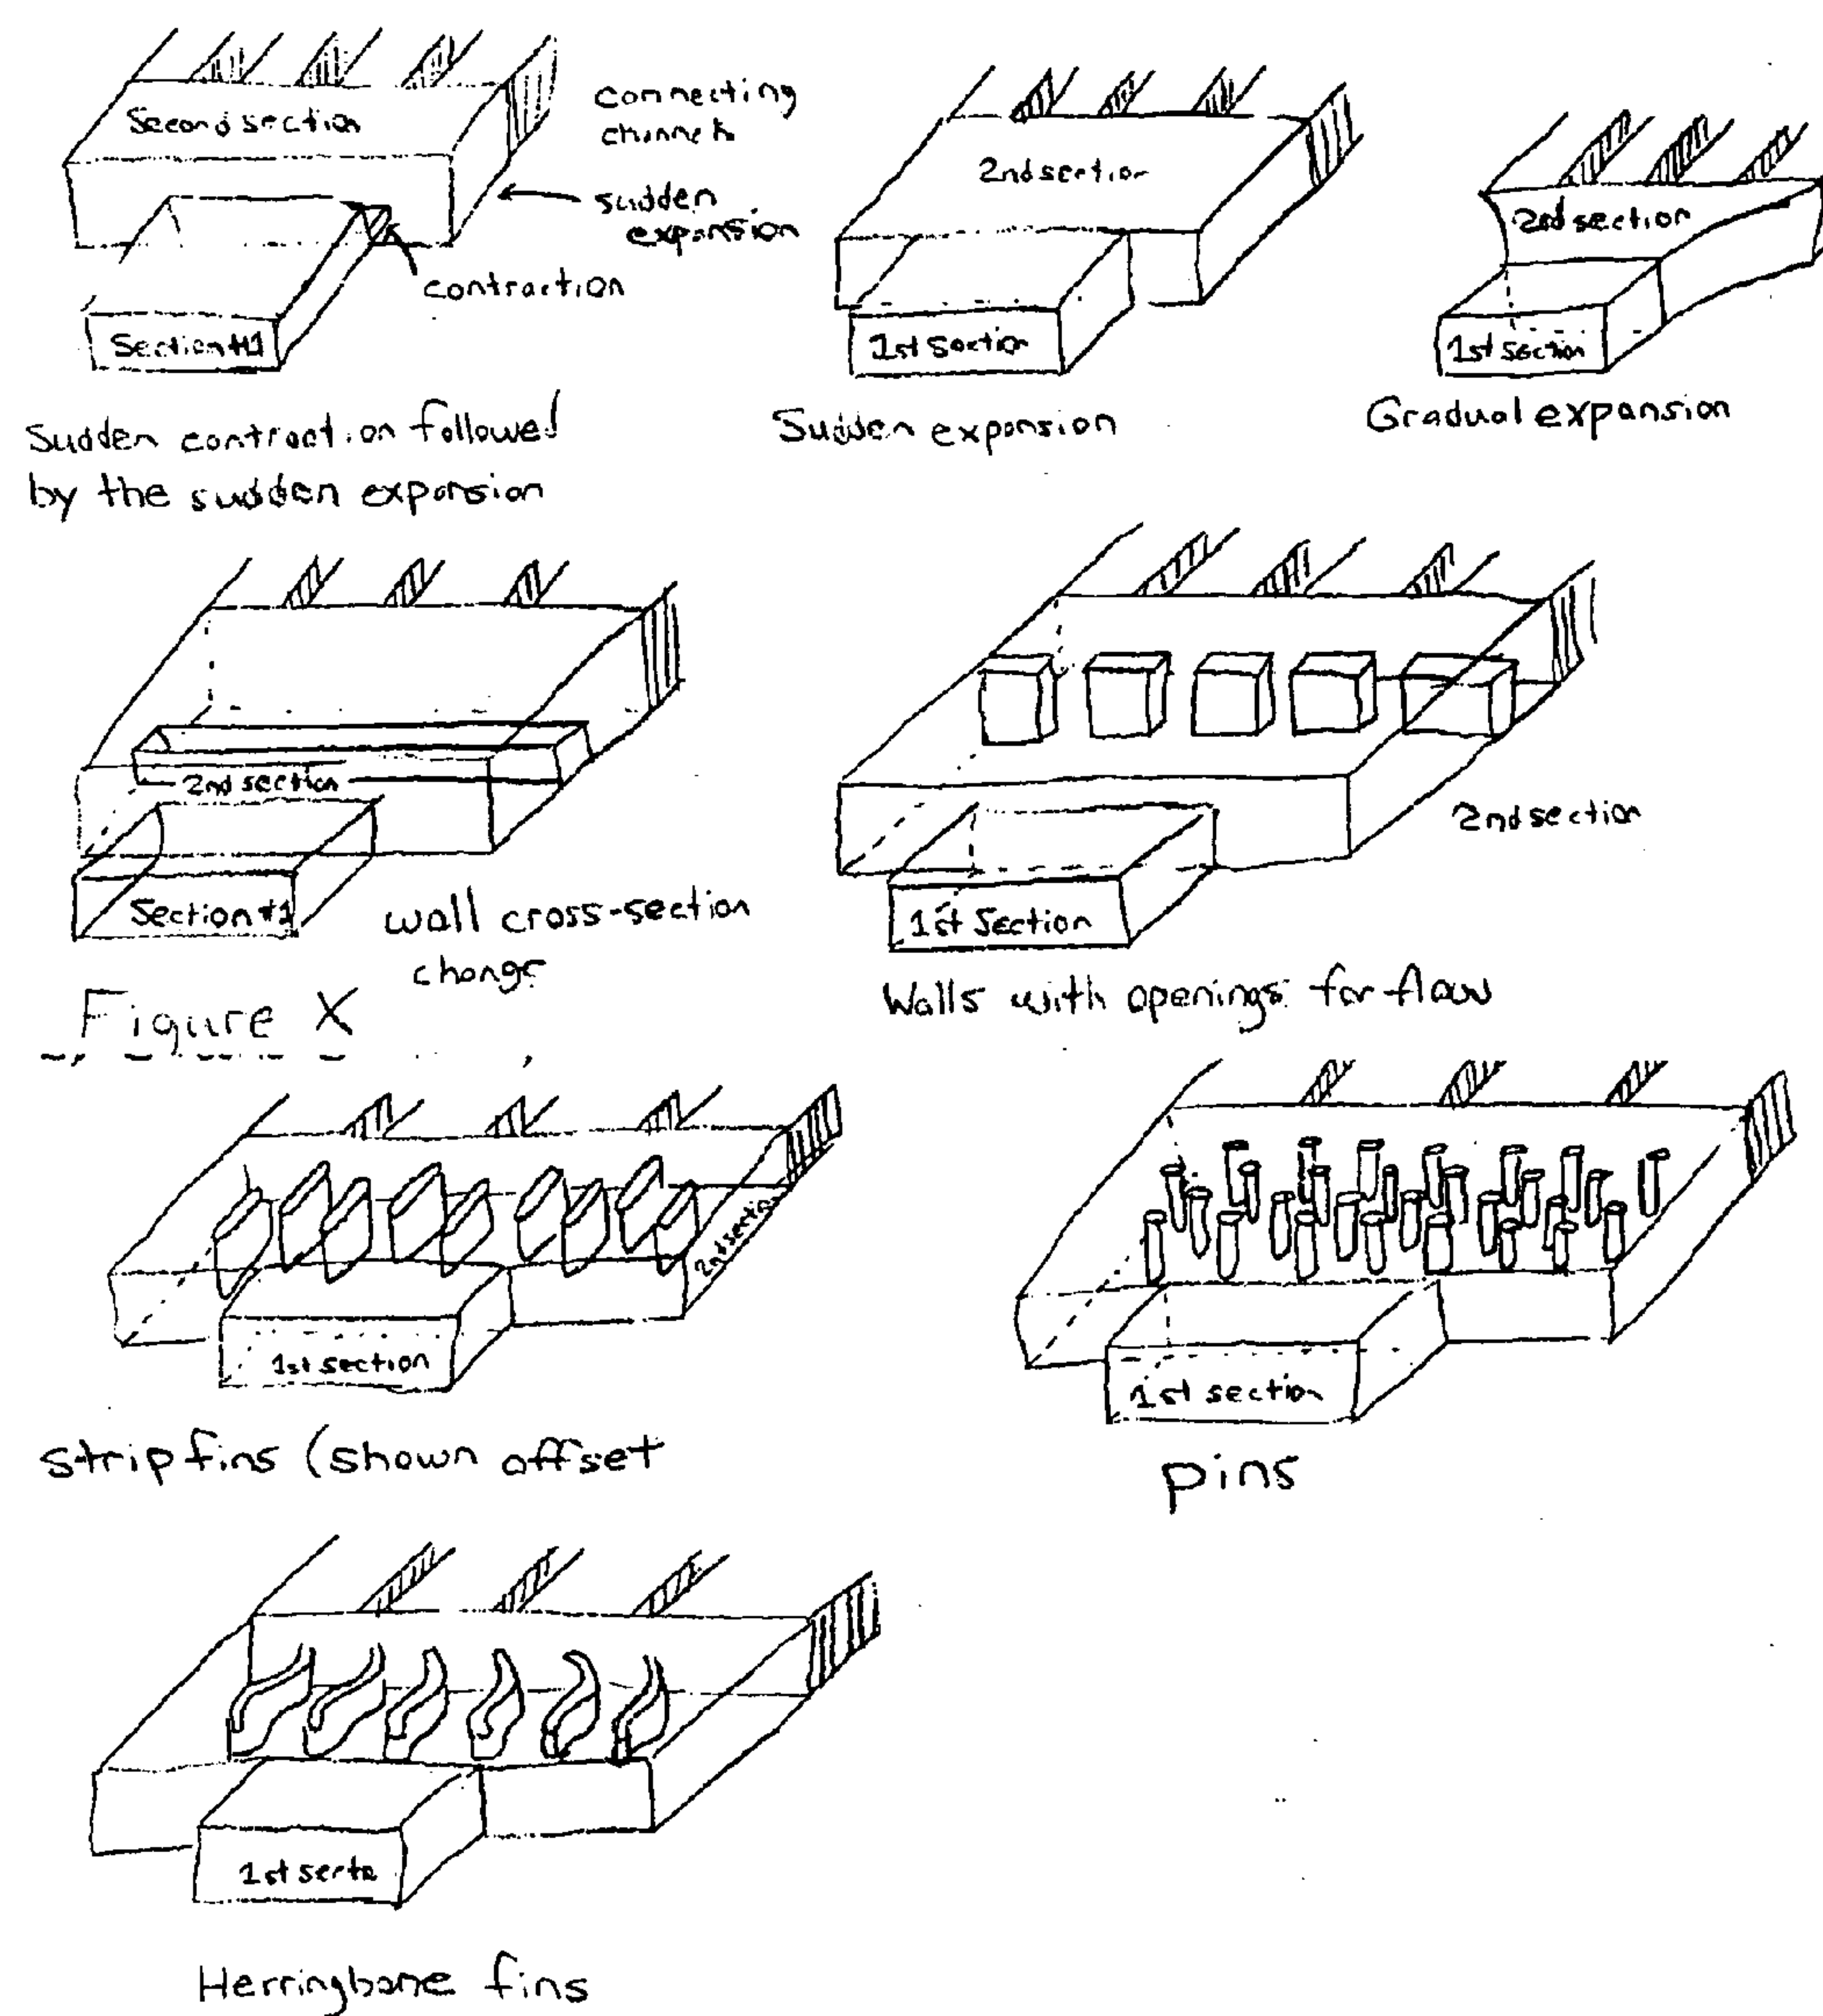 Second section
connecting
channels
sudden
expansion
contraction
Section #1
Sudden contraction followed
by the sudden expansion
2nd section
1st Section
Sudden expansion
2nd section
1st section
Gradual expansion
2nd section
Section #1
wall cross-section
change
Figure X
2nd section
1st Section
Walls with openings for flow
2nd sectio
1st section
strip fins (shown offset
1st section
pins
1st sectn
Herringbone fins